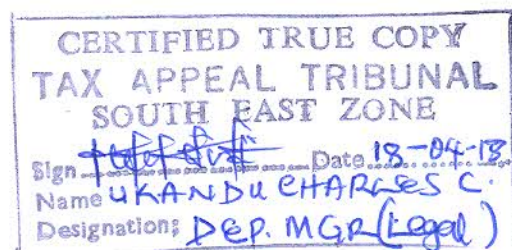 CERTIFIED TRUE COPY
TAX APPEAL TRIBUNAL
SOUTH EAST ZONE
Sign Date 18-04-18
Name UKANDU CHARLES C.
Designation: DEP. MGR (Legal)